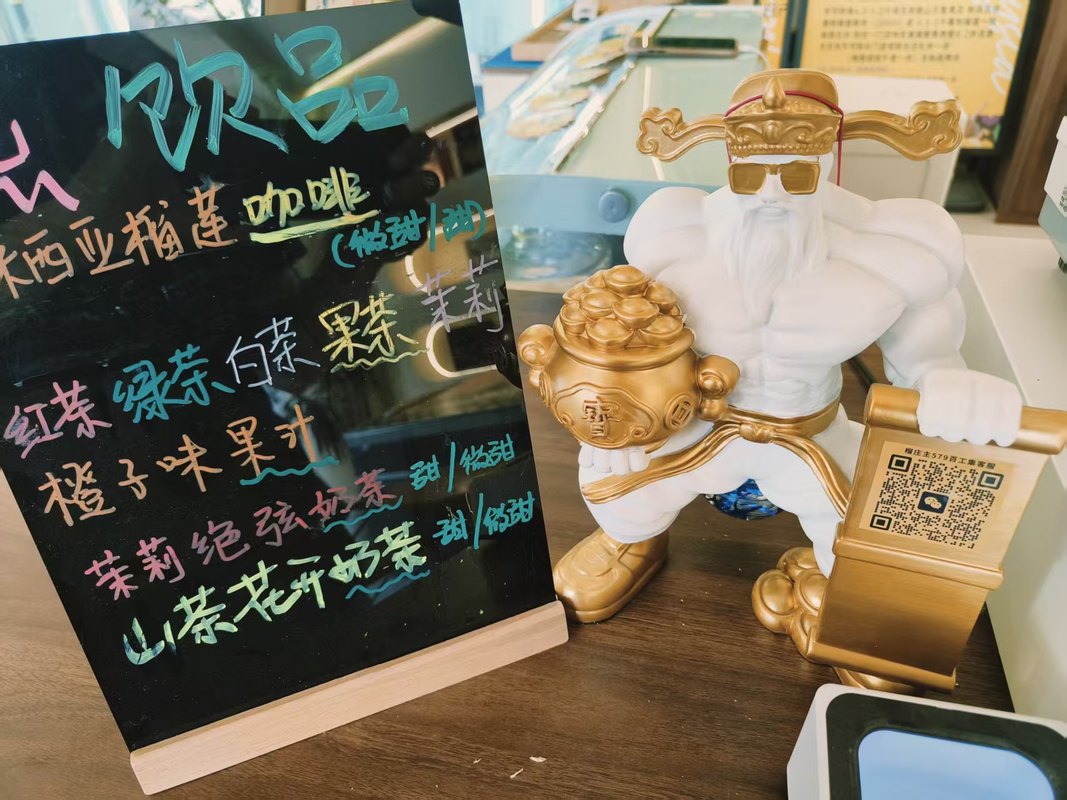 饮品
西亚榴莲咖啡
(微甜/甜)
红茶 绿茶 白茶 果茶 茉莉
橙子味果汁
茉莉绝弦奶茶 甜/微甜
山茶花开奶茶 甜/微甜
寶
榴庄主579百工集客服